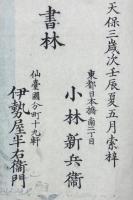 天保三歳次壬辰夏五月発梓
東都日本橋南二丁目
小林新兵衞
書林
仙臺國分町十九軒
伊勢屋半右衞門